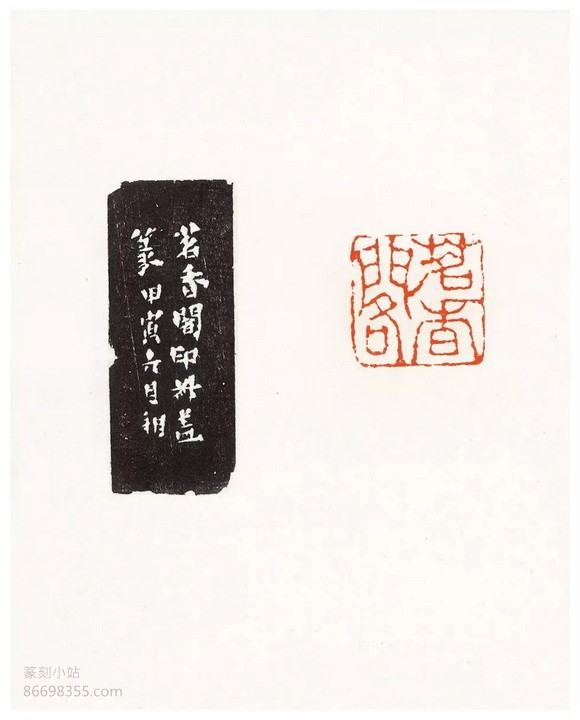 茗香閣
茗香閣印叔蓋
篆甲寅六月相
篆刻小站
86698355.com